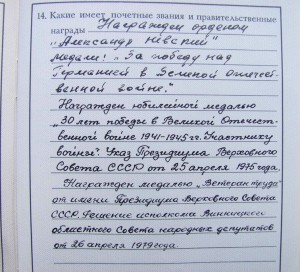 14. Какие имеет почетные звания и правительственные
награды Награжден орденом
„Александр Невский"
медали! „За победу над
Германией в Великой отечест-
венной войне."
Награжден юбилейной медалью
„30 лет победы в Великой Отечест-
венной войне 1941-1945 гг. Участнику
войны". Указ Президиума Верховного
Совета СССР от 25 апреля 1975 года.
Награжден медалью „Ветеран труда"
от имени Президиума Верховного Совета
СССР. Решение исполкома Винницкого
областного Совета народных депутатов
от 26 апреля 1979 года